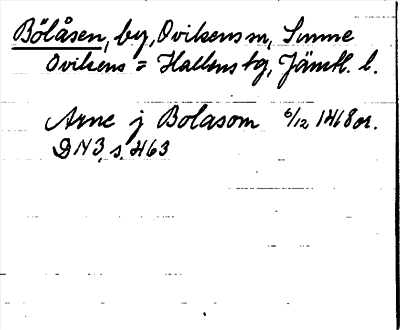 Bölåsen, by, Ovikens sn, Sunne
Ovikens = Hallens tg, Jämtl. l.
Arne j Bolasom 6/12 1468 or.
DN 3, s. 463